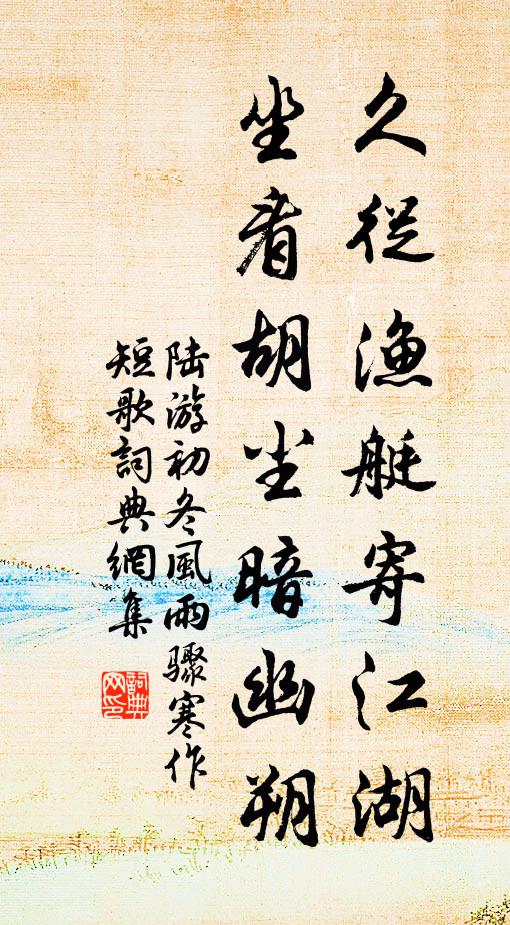 久從漁艇寄江湖
坐看胡尘暗幽朔
陆游初冬風雨驟寒作短歌
詞典網集
詞典网印